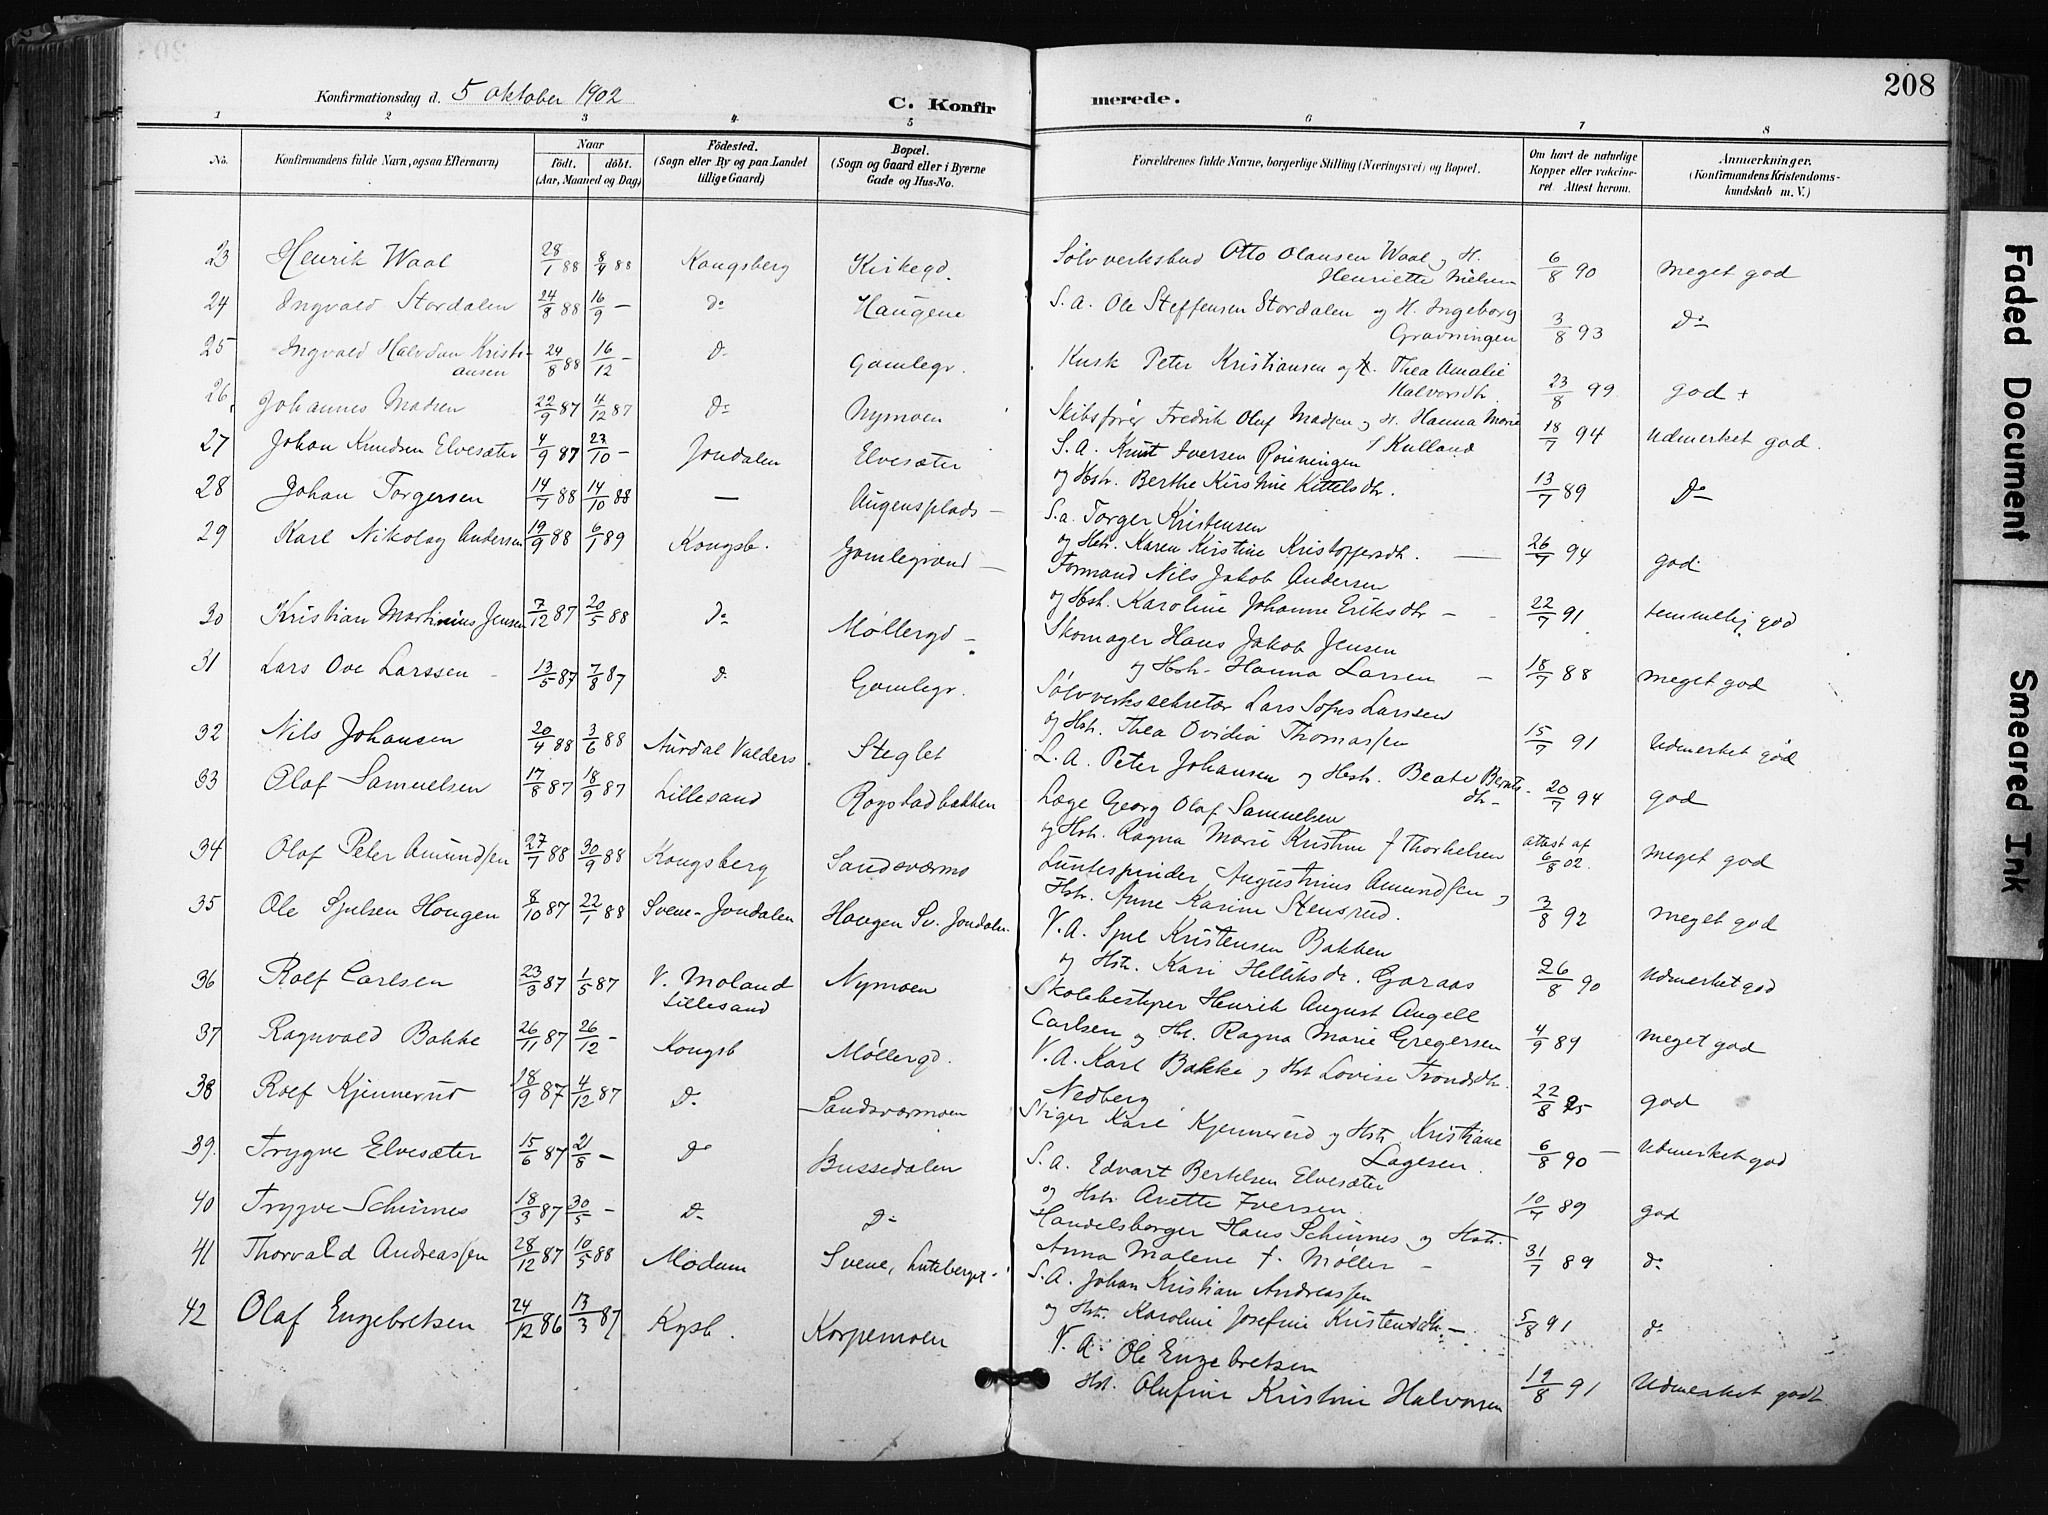 208
Konfirmationsdag d. 5 oktober 1902
C. Konfir merede.
1 2 3 4 5 6 7 8
No. Konfirmandens fulde Navn, ogsaa Efternavn) Naar Født. døbt. (Aar, Maaned og Dag) Fødested. (Sogn eller By og paa Landet tillige Gaard) Bopæl. (Sogn og Gaard eller i Byerne Gade og Hus-No. Forældrenes fulde Navne, borgerlige Stilling (Næringsvei) og Bopæl. Om havt de naturlige Kopper eller vakcineret. Attest herom. Anmærkninger. (Konfirmandens Kristendomskundskab m. V.)
23 Henrik Waal 28/1 88 8/4 88 Kongsberg Kirkegd. Sølvverksbud Otto Olausen Waal og H. Henriette Nielsen 6/8 90 meget god
24 Ingvald Stordalen 24/8 88 16/9 — do Haugene S. A. Ole Steffensen Stordalen og H. Ingeborg Gravningen 3/8 93 Do
25 Ingvald Halvdan Kristiansen 24/8 88 16/12 — D. Gamlegr. Kusk Peter Kristiansen og H. Thea Amalie Halversdh. 23/8 99 god +
26. Johannes Madsen 22/9 87 4/12 87 Do Nymoen Skibsfører Fredrik Oluf Madsen og H. Hanna Marie f Kulland 18/7 94 Udmerket god.
27 Johan Knudsen Elvesæter 4/9 87 23/10 — Jondalen Elvesæter S. A. Knut Iversen Rouningen og Hstr. Berthe Kirstine Kittelsdtr. 13/7 89 Do
28 Johan Torgersen 14/7 88 14/10 88 — Augensplads — S. a. Torger Kristensen og Hstr. Karen Kirstine Kristoffersdh. — 26/7 94 god
29 Karl Nikolay Andersen 19/9 88 6/1 89 Kongsb. Gamlegrænd — Formand Nils Jakob Andersen og Hst. Karoline Johanne Eriksdtr — 22/7 91 temmelig god
30 Kristian Martinius Jensen 7/12 87 20/5 88 Do Møllergd — Skomager Hans Jakob Jensen og Hstr. Hanna Larsen — 18/7 88 meget god
31 Lars Ove Larssen 13/5 87 7/8 87 D. Gamlegr. Sølvverkssekretær Lars Sofus Larssen og Hst. Thea Ovidia Thomassen 15/7 91 Udmerket god
32 Nils Johansen 20/4 88 3/6 88 Aurdal Valders Steglet L. A. Peter Johansen og Hstr. Beate Berntsdtr — 20/7 94 god
33 Olaf Samuelsen 17/8 87 18/9 87 Lillesand Rogstadbakken Læge Georg Olaf Samuelsen og Hstr. Ragna Marie Kristine f Thorkelsen attest af 6/8 02. meget god
34 Olaf Peter Amundsen 27/7 88 30/9 88 Kongsberg Sandsværmo Luntespinder Augustinus Amundsen og Hstr. Anne Karine Stensrud. 3/8 92 meget god
35 Ole Sjulsen Haugen 8/10 87 22/1 88 Svene-Jondalen Haugen Sv. Jondalen V. A. Sjul Kristensen Bakken og Hstr. Kari Helliksdr. Garaas 26/8 90 Udmerket god
36 Rolf Carlsen 23/3 87 1/5 87 V. Moland Lillesand Nymoen Skolebestyrer Henrik August Angell Carlsen og Hst. Ragna Marie Gregersen 4/9 89 meget god
37 Ragnvald Bakke 26/11 87 26/12 — Kongsb Møllergd. V. A. Karl Bakke og Hst Lovise Trondsdtr. Nedberg 22/8 95 god
38 Rolf Kjennerud 18/9 87 4/12 87 D. Sandsværmoen Stiger Karl Kjennerud og Hstr. Kristiane Lagesen. 6/8 90 — Udmerket god
39. Trygve Elvesæter 15/6 87 21/8 — Do Bussedalen S. A. Edvart Bertelsen Elvesæter og Hstr. Anette Iversen. 10/7 89 god
40 Trygve Schinnes 18/3 87 30/5 — D. D. Handelsborger Hans Schinnes og Hstr. Anna Malene f. Møller — 31/7 89 do
41 Thorvald Andreassen 28/12 87 10/5 88 Modum Svene, Luteberget S. A. Johan Kristian Andreassen og Hstr. Karoline Josefine Kristensdtr. — 5/8 91 do
42 Olaf Engebretsen 24/12 86 13/3 87 Kgsb. Korpemoen V. A. Ole Engebretsen Hst. Olufine Kristine Halvorsen 19/8 91 Udmerket godt
Faded Document
Smeared Ink